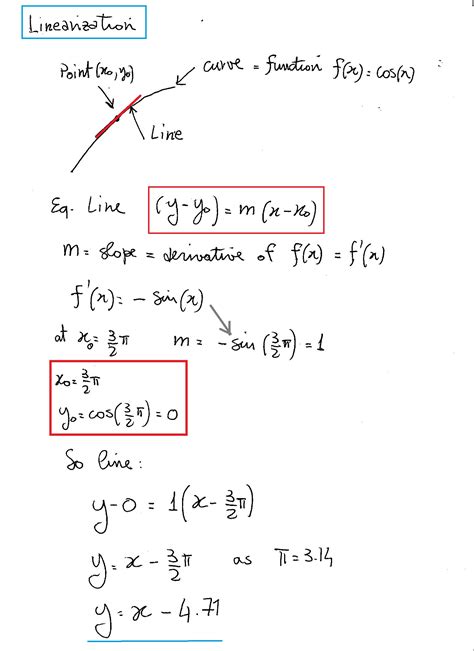 Linearization
Point(x₀, y₀)
curve = function f(x) = cos(x)
Line
Eq. Line (y-y₀) = m (x-x₀)
m = slope = derivative of f(x) = f'(x)
f'(x) = - sin(x)
at x₀ = 3/2 π m = -sin(3/2 π) = 1
x₀ = 3/2 π
y₀ = cos(3/2 π) = 0
So line:
y-0 = 1(x - 3/2 π)
y = x - 3/2 π as π = 3.14
y = x - 4.71